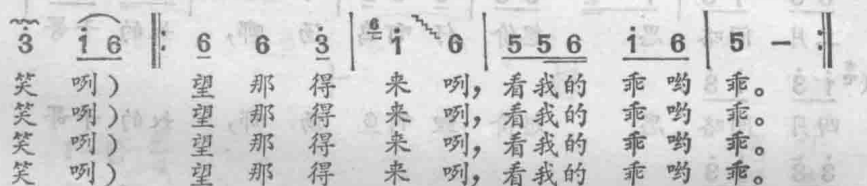 3 i 6 ‖: 6 6 3 | 6 i 6 | 5 5 6 i 6 | 5 – :‖
笑 咧） 望 那 得 来 咧，看我的 乖 哟 乖。
笑 咧） 望 那 得 来 咧，看我的 乖 哟 乖。
笑 咧） 望 那 得 来 咧，看我的 乖 哟 乖。
笑 咧） 望 那 得 来 咧，看我的 乖 哟 乖。